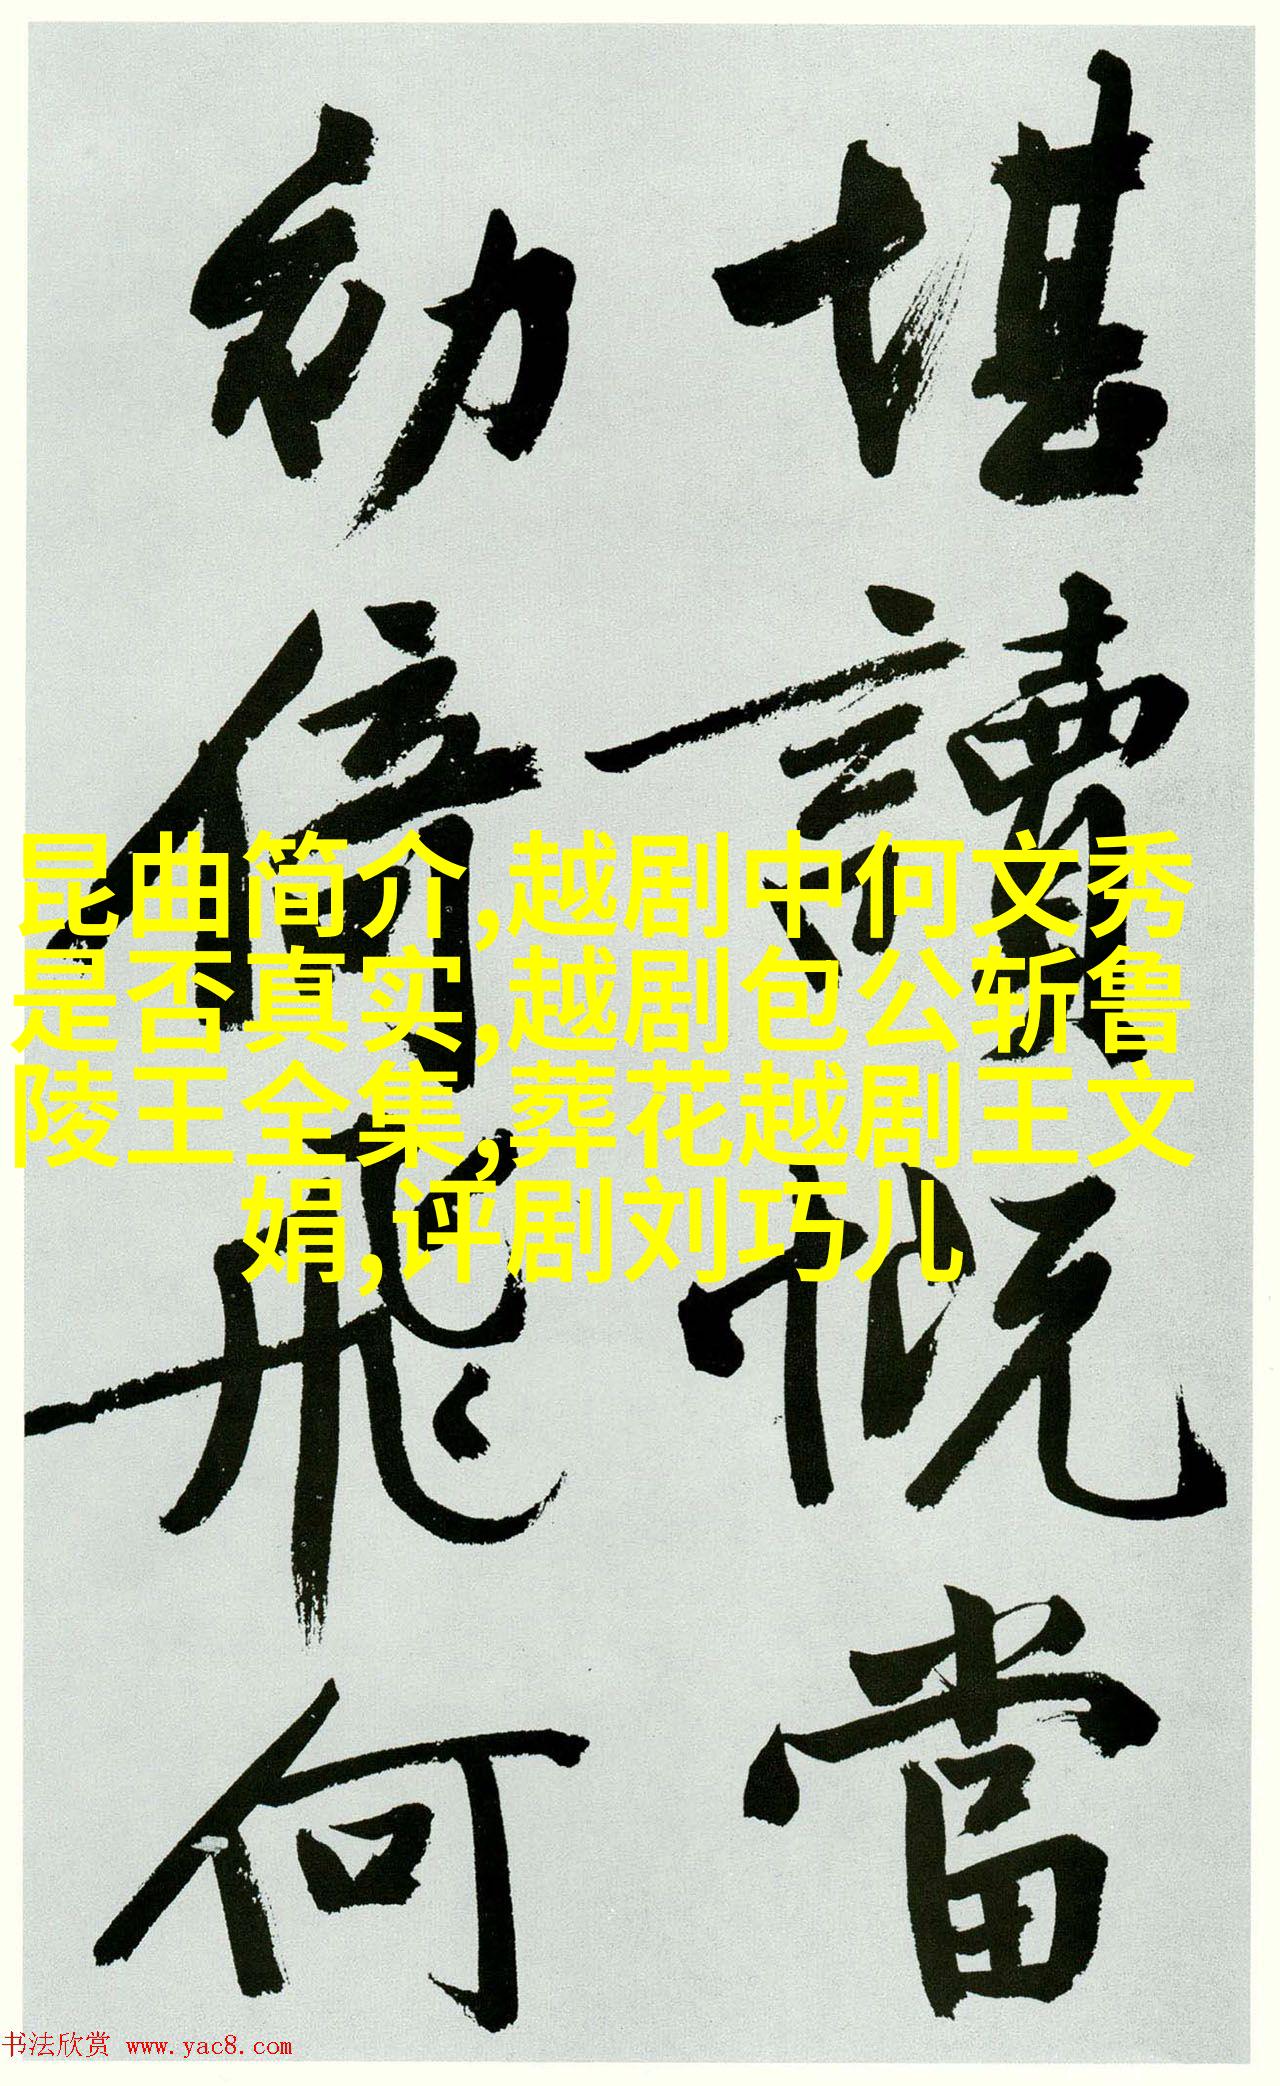 堪讀慨當
初倚飛何
昆曲简介,越剧中何文秀
是否真实,越剧包公斩鲁
陵王全集,葬花越剧王文
娟,评剧刘巧儿
书法欣赏 www.yac8.com